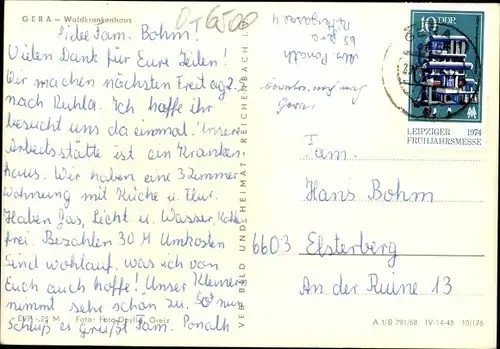 GERA – Waldkrankenhaus
Liebe Fam. Bohm!
Vielen Dank für Eure Zeilen!
Wir machen nächsten Freitag
nach Ruhla. Ich hoffe ihr
besucht uns da einmal. Unsere
Arbeitsstätte ist ein Kranken-
haus. Wir haben eine 3 Zimmer-
Wohnung mit Küche u. Flur.
Haben Gas, Licht u. Wasser,
frei. Bezahlen 30 M Umkosten
Sind wohlauf, was ich von
Euch auch hoffe! Unser Kleiner
nimmt sehr schön zu. So nun
Schluß es Grüßt Fam. Ponath
EVP -,25 M Foto: Greiz
VEB BILD UND HEIMAT REICHENBACH I. V.
Ponath
65 Gera
10 DDR
LEIPZIGER 1974
FRÜHJAHRSMESSE
Fam.
Hans Bohm
6603 Elsterberg
An der Ruine 13
A 1/B 791/68 IV-14-45 10/176